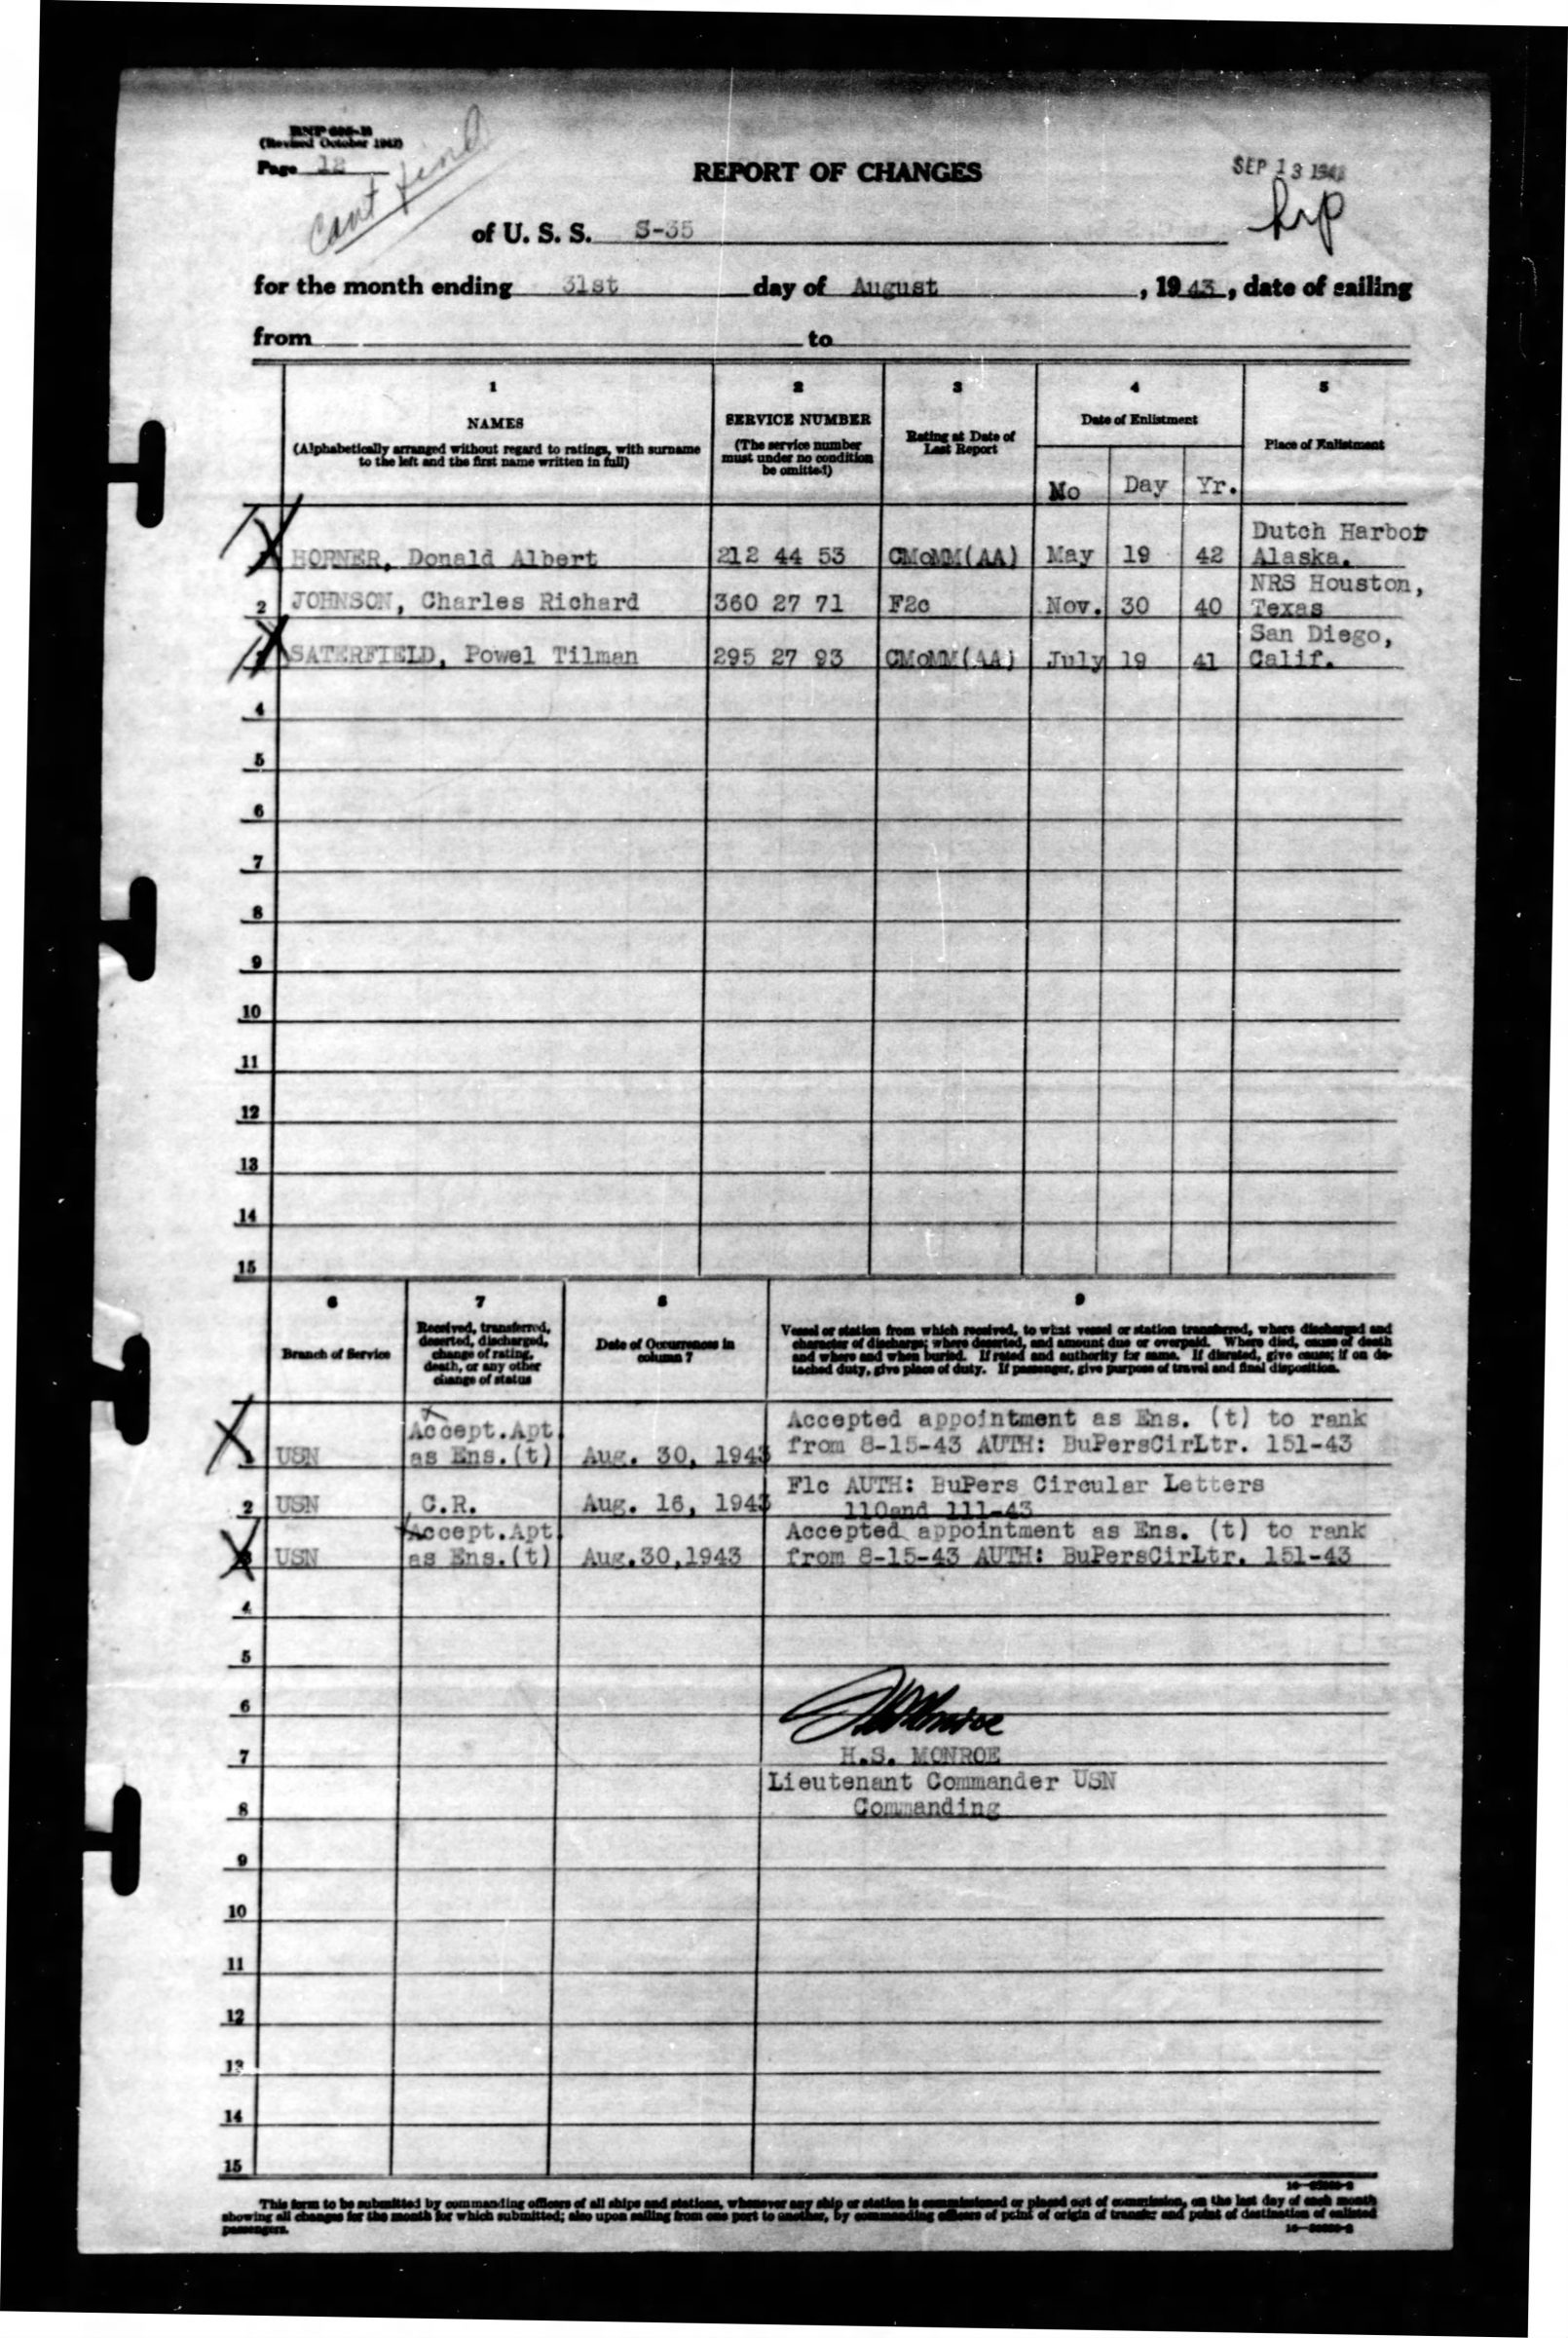 (Revised October 1942)
Page 12
Cant find
REPORT OF CHANGES
SEP 13 1943
of U. S. S. S-35
for the month ending 31st day of August, 1943, date of sailing
from to
1 2 3 4 5
NAMES
(Alphabetically arranged without regard to ratings, with surname
to the left and the first name written in full)
SERVICE NUMBER
(The service number
must under no condition
be omitted)
Rating at Date of
Last Report
Date of Enlistment
Mo Day Yr.
Place of Enlistment
HORNER, Donald Albert 212 44 53 CMoMM(AA) May 19 42 Dutch Harbor
Alaska.
2 JOHNSON, Charles Richard 360 27 71 F2c Nov. 30 40 NRS Houston,
Texas
SATERFIELD, Powel Tilman 295 27 93 CMoMM(AA) July 19 41 San Diego,
Calif.
4
5
6
7
8
9
10
11
12
13
14
15
6 7 8 9
Branch of Service
Received, transferred,
deserted, discharged,
change of rating,
death, or any other
change of status
Date of Occurrences in
column 7
Vessel or station from which received, to what vessel or station transferred, where discharged and
character of discharge; where deserted, and amount due or overpaid. Where died, cause of death
and where and when buried. If rated and authority for same. If disrated, give cause; if on de-
tached duty, give place of duty. If passenger, give purpose of travel and final disposition.
Accept.Apt. Accepted appointment as Ens. (t) to rank
USN as Ens.(t) Aug. 30, 1943 from 8-15-43 AUTH: BuPersCirLtr. 151-43
F1c AUTH: BuPers Circular Letters
2 USN C.R. Aug. 16, 1943 110and 111-43
Accept.Apt. Accepted appointment as Ens. (t) to rank
3 USN as Ens.(t) Aug.30,1943 from 8-15-43 AUTH: BuPersCirLtr. 151-43
4
5
6
7
H.S. MONROE
Lieutenant Commander USN
8 Commanding
9
10
11
12
13
14
15
This form to be submitted by commanding officers of all ships and stations, whenever any ship or station is commissioned or placed out of commission, on the last day of each month
showing all changes for the month for which submitted; also upon sailing from one port to another, by commanding officers of point of origin of transfer and point of destination of enlisted
passengers.